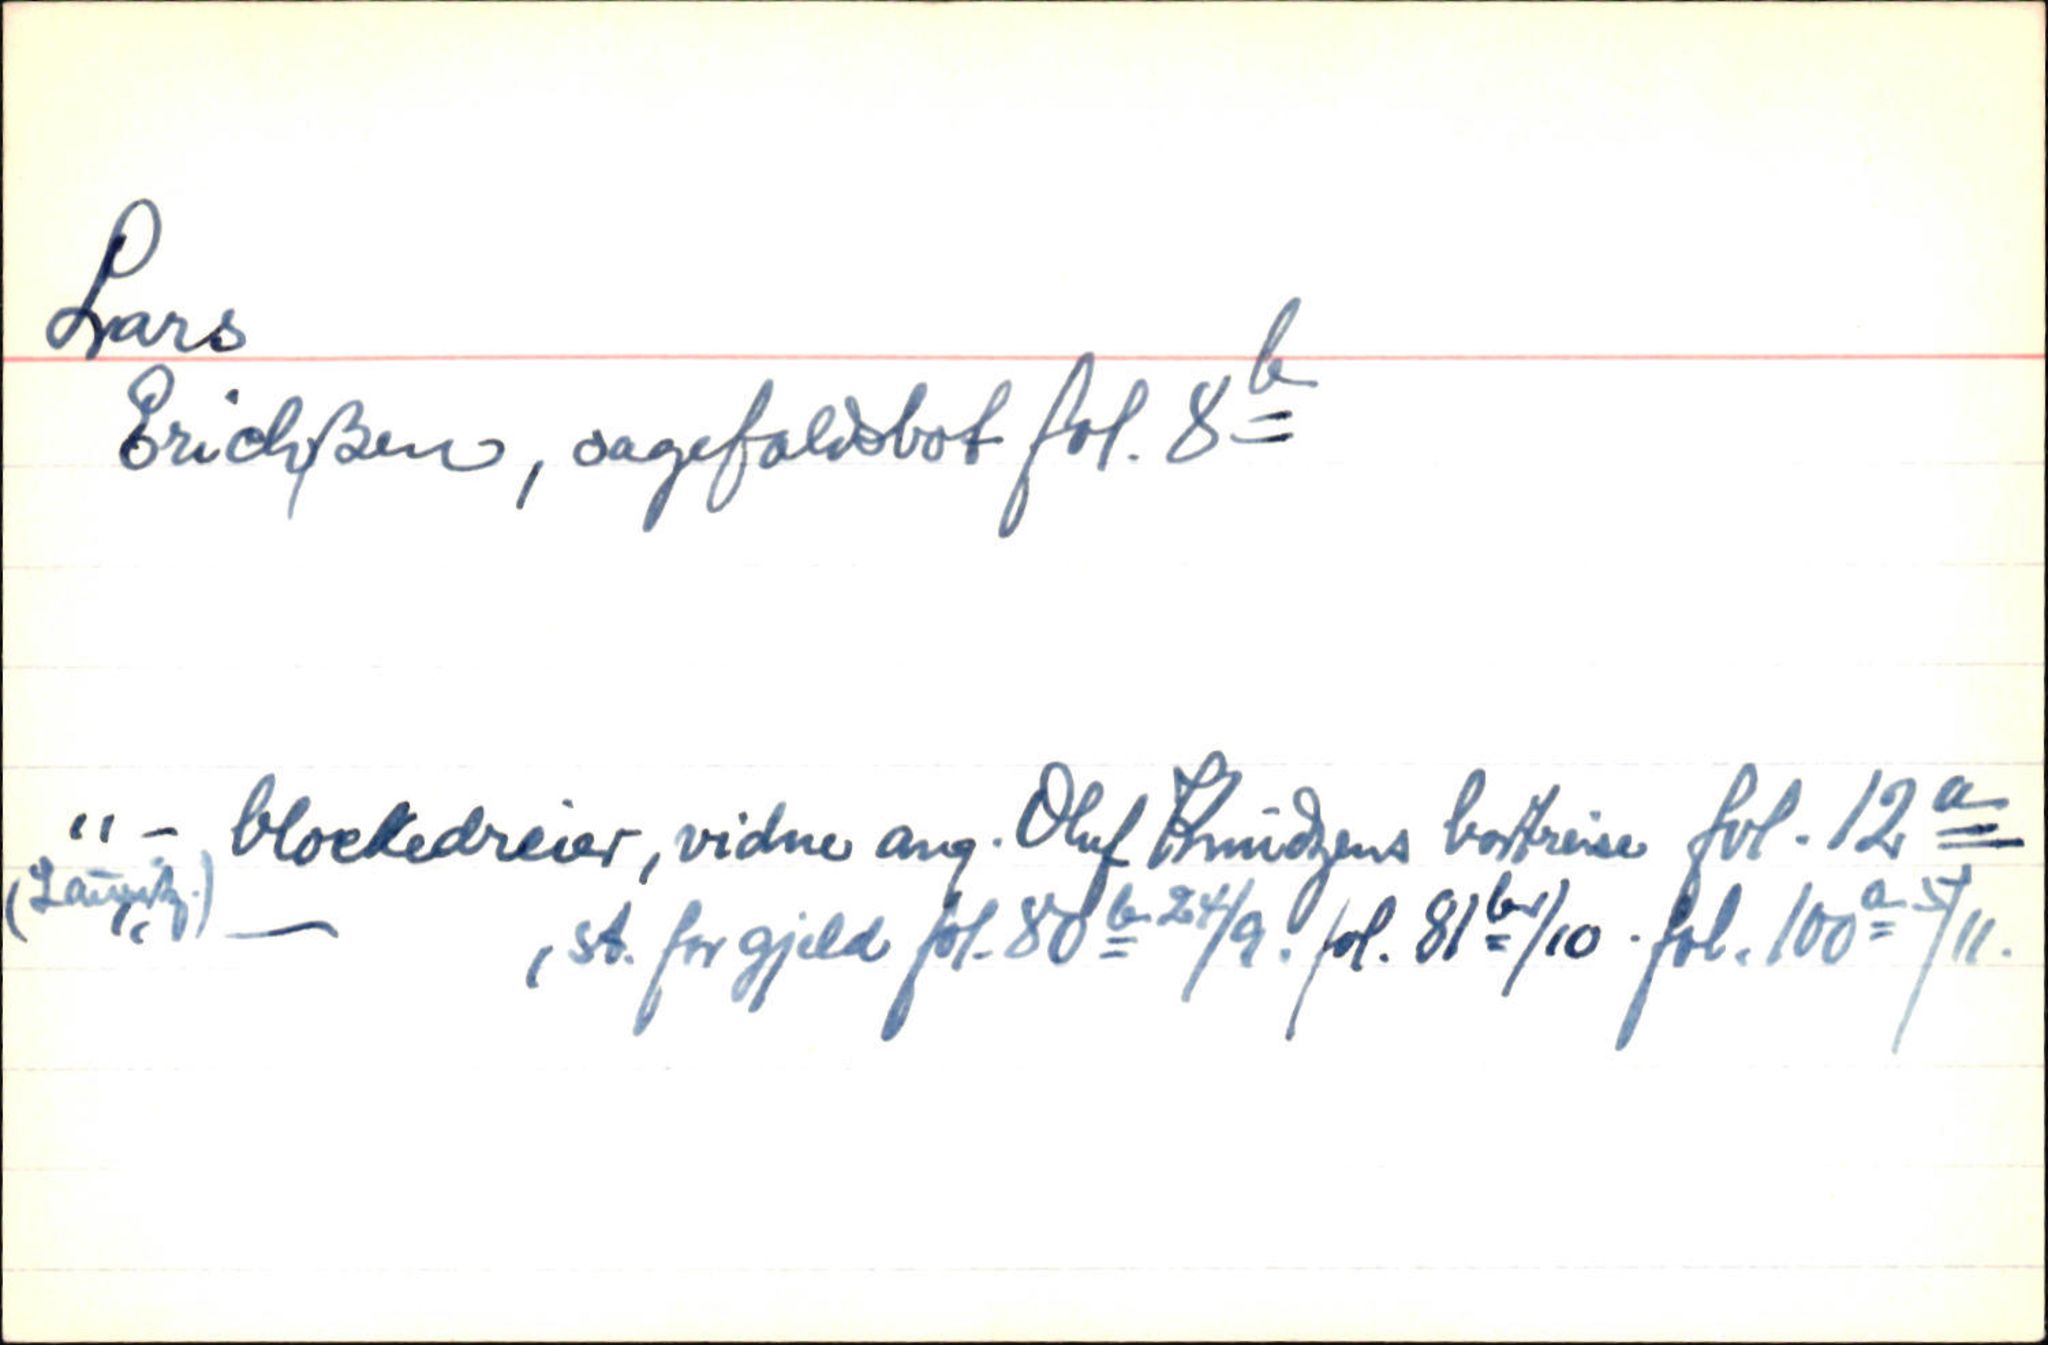 Lars
Erichßen, sagefaldsbot fol. 8b
" - blockedreier, vidne ang. Oluf Knudzens bortreise fol. 12a
(Lauritz.)
" — , st. for gjeld fol. 80b 24/9. fol. 81b 1/10. fol. 100a 5/11.